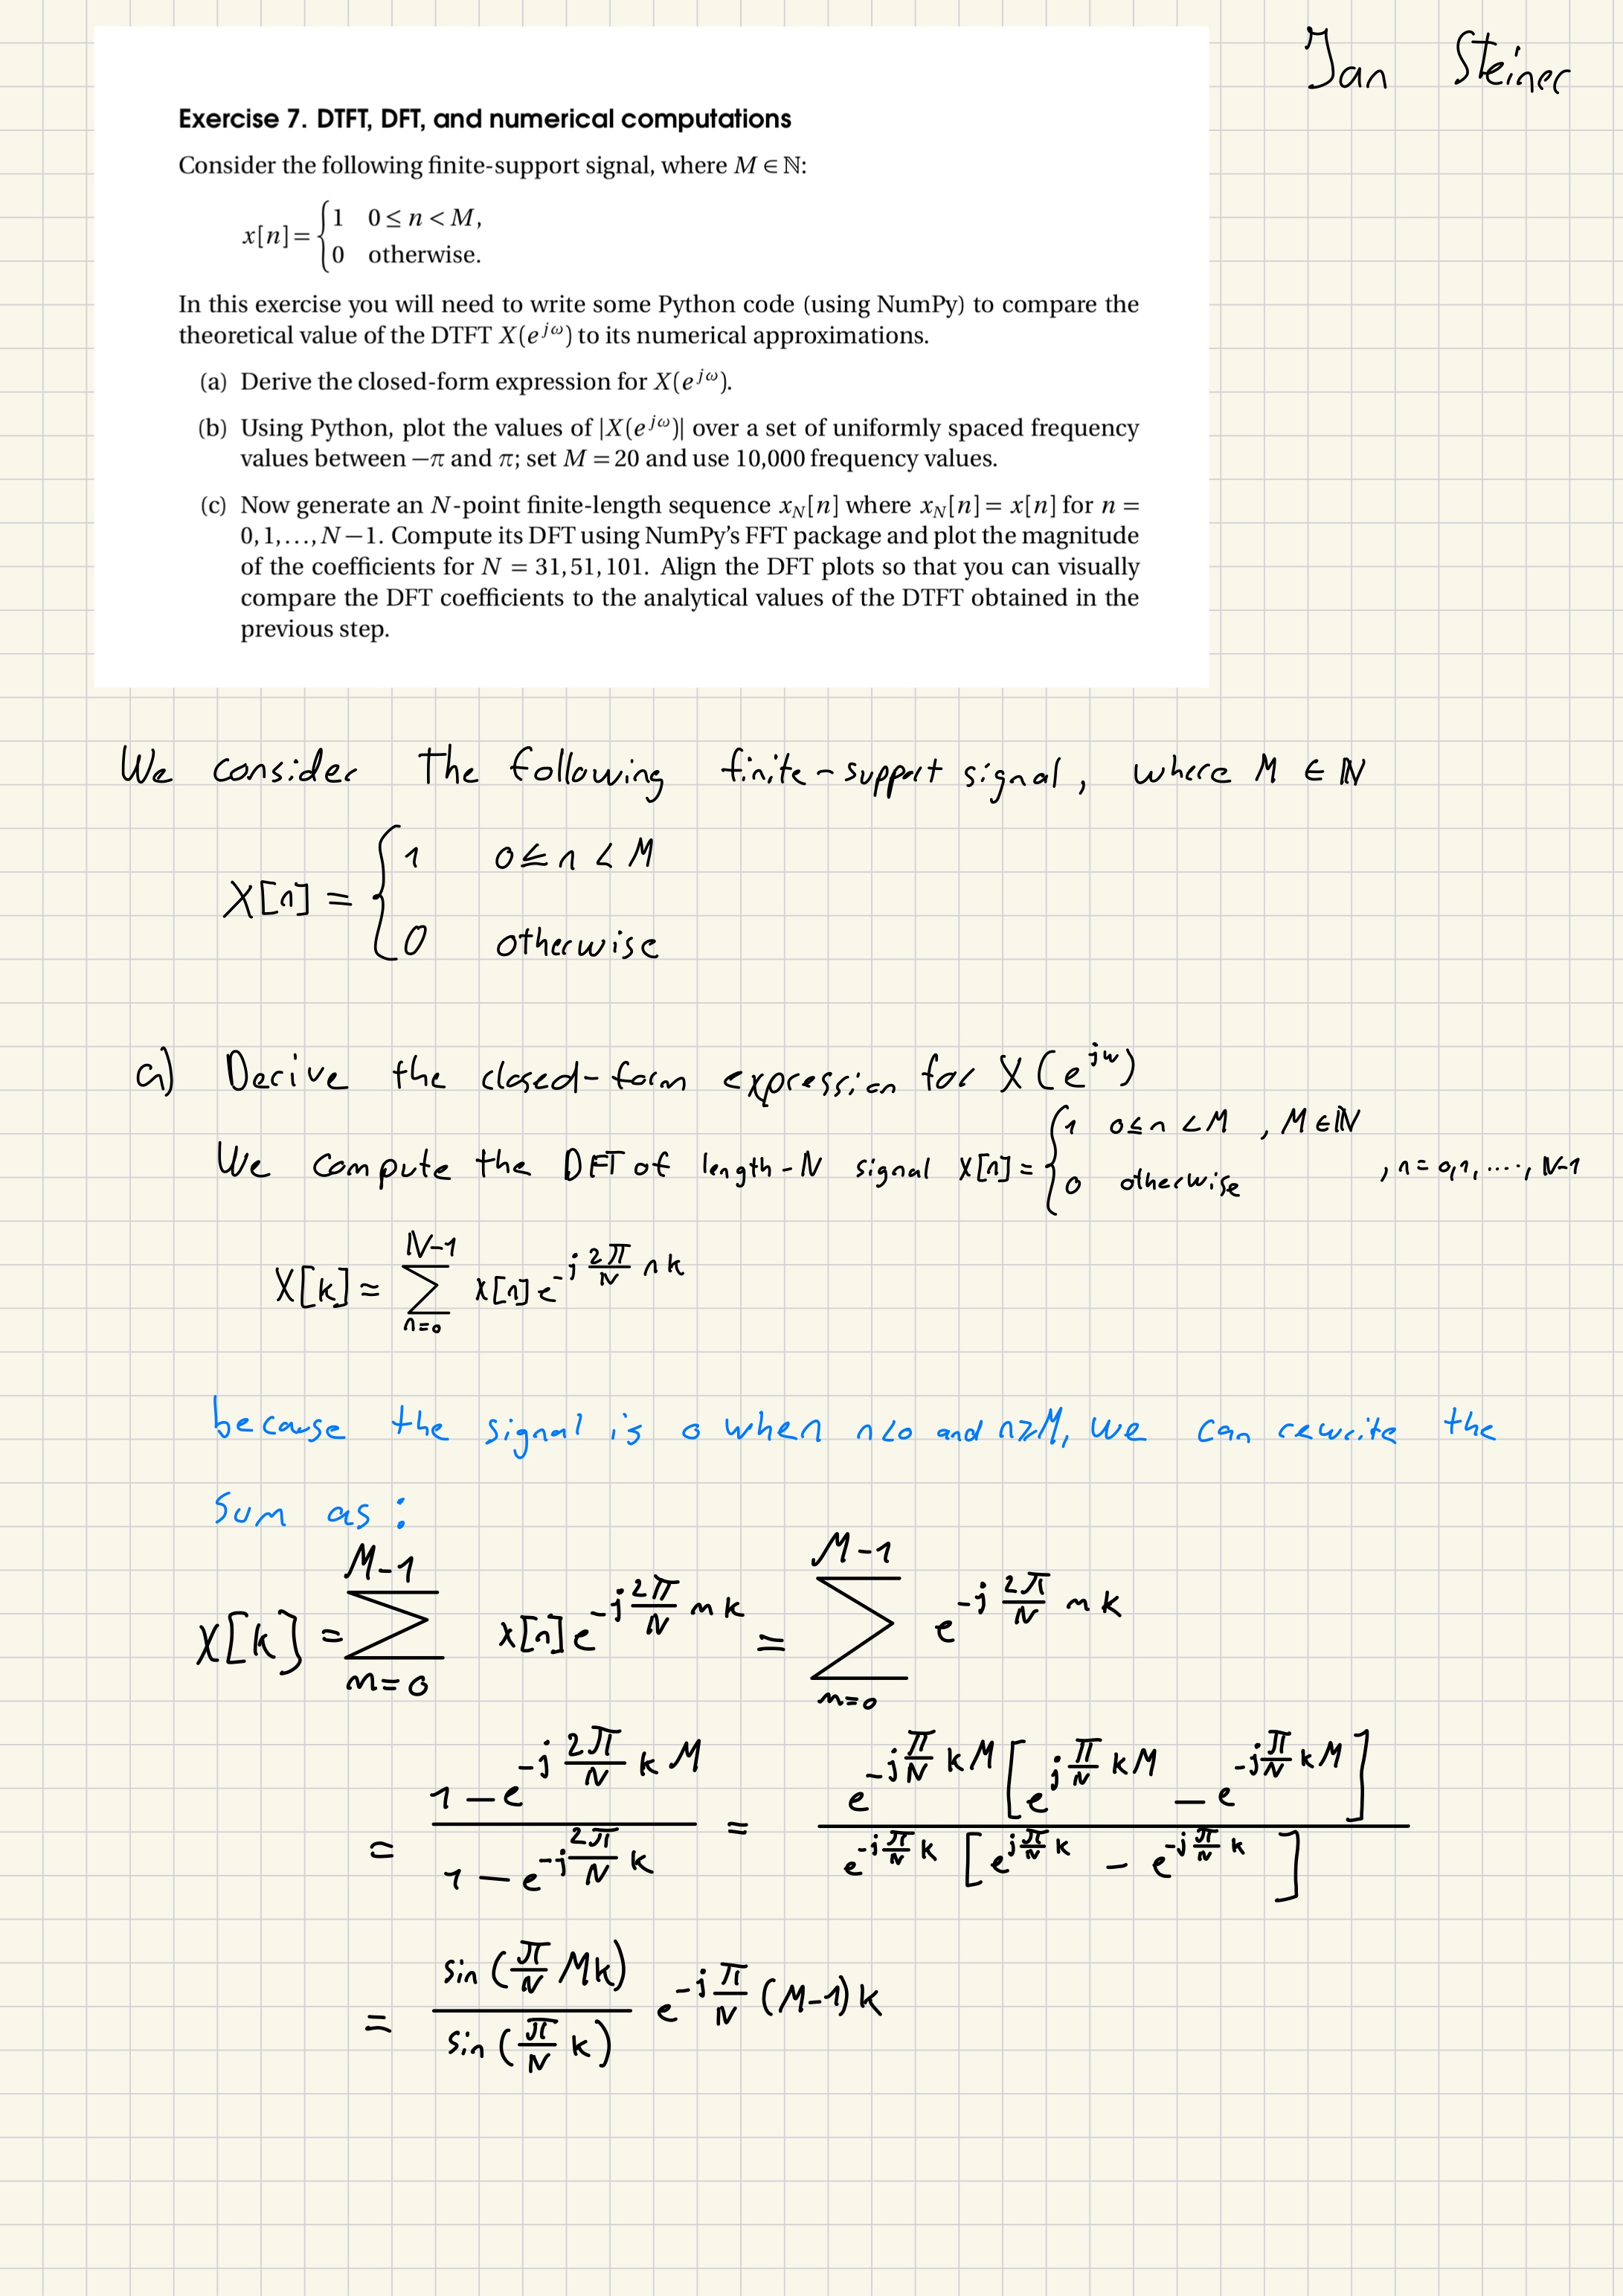 Jan Steiner
Exercise 7. DTFT, DFT, and numerical computations
Consider the following finite-support signal, where M ∈ ℕ:
x[n] = { 1 0 ≤ n < M,
0 otherwise.
In this exercise you will need to write some Python code (using NumPy) to compare the
theoretical value of the DTFT X(e^{jω}) to its numerical approximations.
(a) Derive the closed-form expression for X(e^{jω}).
(b) Using Python, plot the values of |X(e^{jω})| over a set of uniformly spaced frequency
values between −π and π; set M = 20 and use 10,000 frequency values.
(c) Now generate an N-point finite-length sequence x_N[n] where x_N[n] = x[n] for n =
0, 1, …, N − 1. Compute its DFT using NumPy's FFT package and plot the magnitude
of the coefficients for N = 31, 51, 101. Align the DFT plots so that you can visually
compare the DFT coefficients to the analytical values of the DTFT obtained in the
previous step.
We consider the following finite-support signal, where M ∈ ℕ
X[n] = { 1 0 ≤ n < M
0 otherwise
a) Derive the closed-form expression for X(e^{jw})
We compute the DFT of length-N signal x[n] = { 1 0 ≤ n < M , M ∈ ℕ
0 otherwise , n = 0,1,....,N-1
X[k] = ∑_{n=0}^{N-1} x[n] e^{-j 2π/N nk}
because the signal is 0 when n<0 and n≥M, we can rewrite the
sum as:
X[k] = ∑_{m=0}^{M-1} x[n] e^{-j 2π/N mk} = ∑_{m=0}^{M-1} e^{-j 2π/N mk}
= (1 - e^{-j 2π/N kM}) / (1 - e^{-j 2π/N k}) = (e^{-j π/N kM} [e^{j π/N kM} - e^{-j π/N kM}]) / (e^{-j π/N k} [e^{j π/N k} - e^{-j π/N k}])
= sin(π/N Mk) / sin(π/N k) e^{-j π/N (M-1)k}